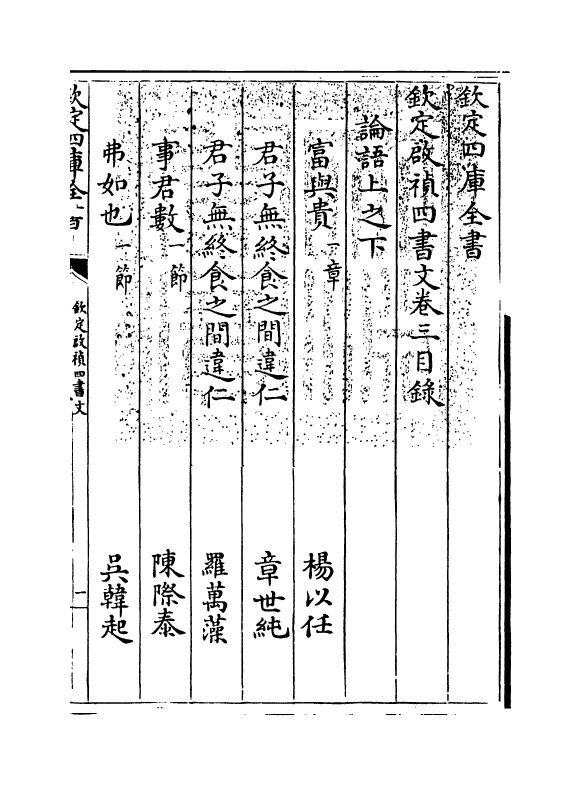 欽定四庫全書
欽定啟禎四書文卷三目錄
論語上之下
富與貴一章 楊以任
君子無終食之間違仁 章世純
君子無終食之間違仁 羅萬藻
事君數一節 陳際泰
弗如也一節 吳韓起
欽定四庫全書
欽定啟禎四書文
一